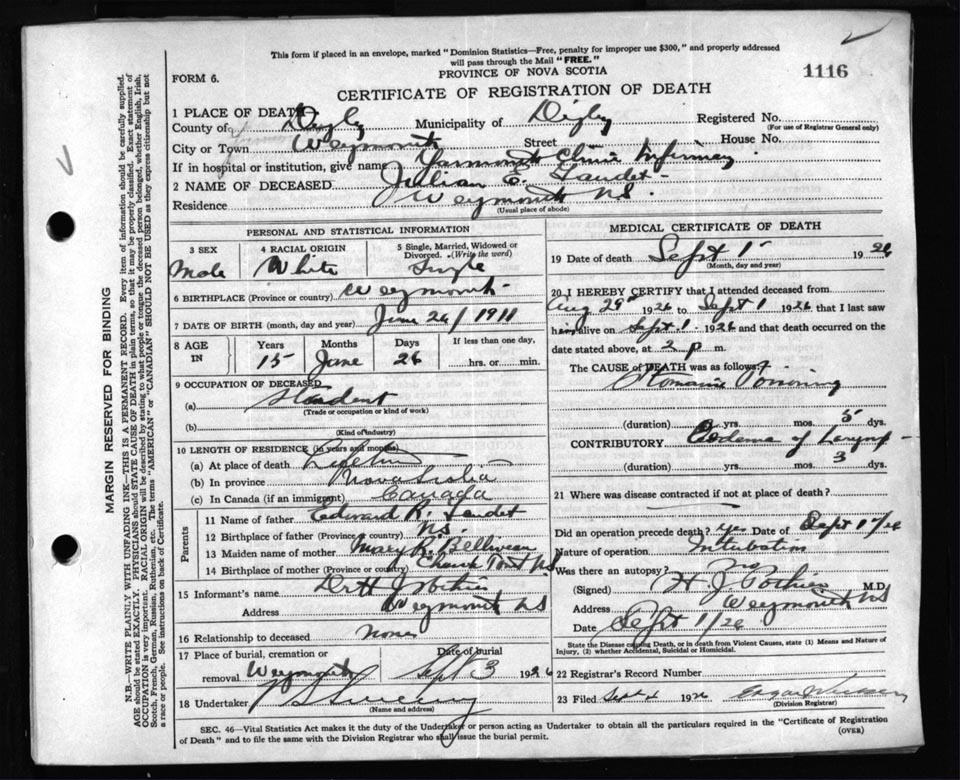 This form if placed in an envelope, marked "Dominion Statistics—Free, penalty for improper use $300," and properly addressed
will pass through the Mail "FREE."
PROVINCE OF NOVA SCOTIA
1116
FORM 6.
CERTIFICATE OF REGISTRATION OF DEATH
1 PLACE OF DEATH
County of Digby Municipality of Digby Registered No.
(For use of Registrar General only)
City or Town Weymouth Street House No.
If in hospital or institution, give name Yarmouth Clinic
2 NAME OF DECEASED Julian E.
Residence Weymouth NS.
(Usual place of abode)
PERSONAL AND STATISTICAL INFORMATION
3 SEX Male
4 RACIAL ORIGIN White
5 Single, Married, Widowed or Divorced. (Write the word) Single
6 BIRTHPLACE (Province or country) Weymouth
7 DATE OF BIRTH (month, day and year) June 26/1911
8 AGE IN Years 15 Months June Days 26 If less than one day, hrs. or min.
9 OCCUPATION OF DECEASED
(a) Student
(Trade or occupation or kind of work)
(b)
(Kind of industry)
10 LENGTH OF RESIDENCE (in years and months)
(a) At place of death Lifetime
(b) In province Nova Scotia
(c) In Canada (if an immigrant) Canada
Parents
11 Name of father Edward R.
12 Birthplace of father (Province or country) NS.
13 Maiden name of mother Mary R.
14 Birthplace of mother (Province or country) NS
15 Informant's name
Address Weymouth NS
16 Relationship to deceased None
17 Place of burial, cremation or removal Weymouth Date of burial Sept 3 1926
18 Undertaker
(Name and address)
MEDICAL CERTIFICATE OF DEATH
19 Date of death Sept 1 1926
(Month, day and year)
20 I HEREBY CERTIFY that I attended deceased from
Aug 29 1926 to Sept 1 1926 that I last saw
him alive on Sept 1. 1926 and that death occurred on the
date stated above, at 2 p m.
The CAUSE of DEATH was as follows:
Ptomaine Poisoning
(duration) yrs. mos. 5 dys.
CONTRIBUTORY Oedema of Larynx
(duration) yrs. mos. 3 dys.
21 Where was disease contracted if not at place of death?
Did an operation precede death? yes Date of Sept 1/26
Nature of operation Intubation
Was there an autopsy? no
(Signed) H. J. Pothier M.D.
Address Weymouth NS
Date Sept 1/26
State the Disease causing Death, or in death from Violent Causes, state (1) Means and Nature of
Injury, (2) whether Accidental, Suicidal or Homicidal.
22 Registrar's Record Number
23 Filed Sept 4 1926
(Division Registrar)
SEC. 46—Vital Statistics Act makes it the duty of the Undertaker or person acting as Undertaker to obtain all the particulars required in the "Certificate of Registration
of Death" and to file the same with the Division Registrar who shall issue the burial permit.
(OVER)
MARGIN RESERVED FOR BINDING
N.B.—WRITE PLAINLY WITH UNFADING INK—THIS IS A PERMANENT RECORD. Every item of information should be carefully supplied.
AGE should be stated EXACTLY. PHYSICIANS should STATE CAUSE OF DEATH in plain terms, so that it may be properly classified. Exact statement of
OCCUPATION is very important. RACIAL ORIGIN will be described by stating to what people or tongue the deceased person belonged, whether English, Irish,
Scotch, French, German, Russian, Ruthenian, etc. The terms "AMERICAN" or "CANADIAN" SHOULD NOT BE USED as they express citizenship but not
a race or people. See instructions on back of Certificate.